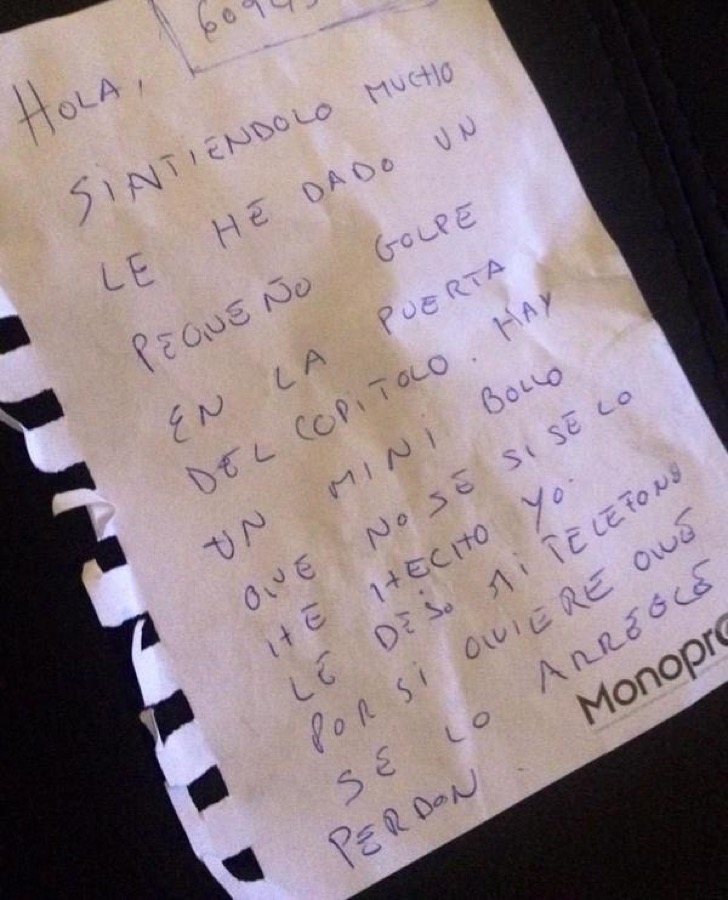 6094
HOLA,
SINTIENDOLO MUCHO
LE HE DADO UN
PEQUEÑO GOLPE
EN LA PUERTA
DEL COPITOLO. HAY
UN MINI BOLLO
QUE NO SE SI SE LO
HE HECHO YO.
LE DEJO MI TELEFONO
POR SI QUIERE QUE
SE LO ARREGLE
PERDON.
Monopr